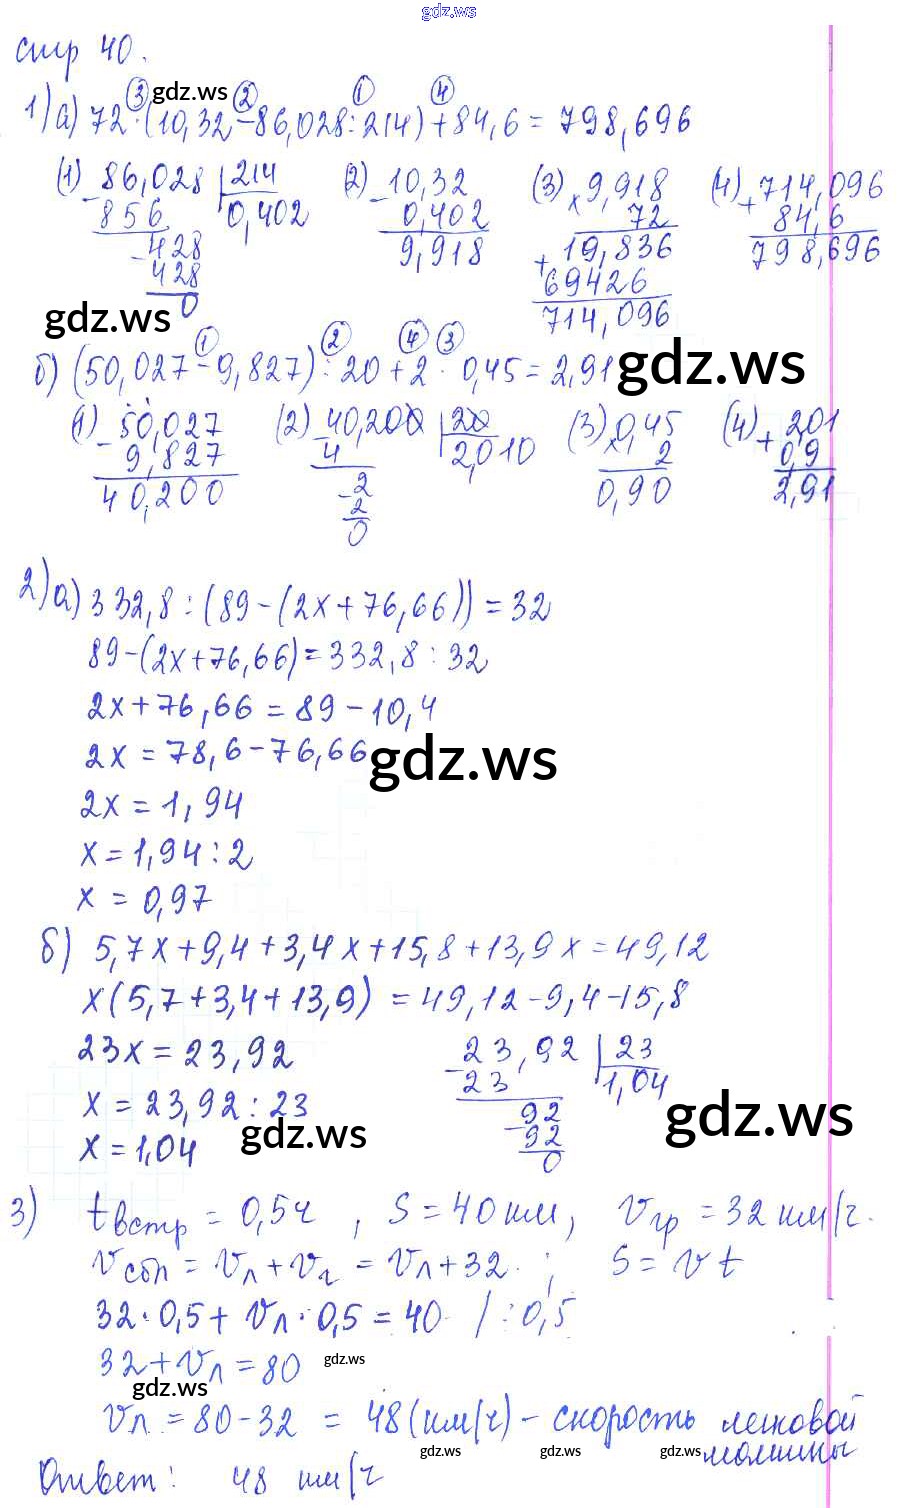 gdz.ws
стр 40.
③ gdz.ws ② ① ④
1) а) 72·(10,32-86,028:214)+84,6=798,696
(1) 86,028 |214 (2) 10,32 (3) 9,918 (4) 714,096
- 856 0,402 - 0,402 × 72 + 84,6
- 428 9,918 + 19,836 798,696
428 69426
0 714,096
gdz.ws
① ② ④ ③
б) (50,027-9,827):20+2·0,45=2,91 gdz.ws
(1) 50,027 (2) 40,200 |20 (3) 0,45 (4) 2,01
- 9,827 - 4 2,010 × 2 + 0,9
40,200 - 2 0,90 2,91
2
0
2) а) 332,8:(89-(2x+76,66))=32
89-(2x+76,66)=332,8:32
2x+76,66=89-10,4
2x=78,6-76,66 gdz.ws
2x=1,94
x=1,94:2
x=0,97
б) 5,7x+9,4+3,4x+15,8+13,9x=49,12
x(5,7+3,4+13,9)=49,12-9,4-15,8
23x=23,92 - 23,92 |23
23 1,04
x=23,92:23 - 92
gdz.ws 92 gdz.ws
x=1,04 0
3) tвстр=0,5ч, S=40км, vгр=32км/ч.
vсбл=vл+vг=vл+32.; S=vt
32·0,5+vл·0,5=40 /:0,5
32+vл=80 gdz.ws
gdz.ws
vл=80-32=48(км/ч)-скорость легковой
gdz.ws gdz.ws gdz.ws машины
Ответ: 48 км/ч